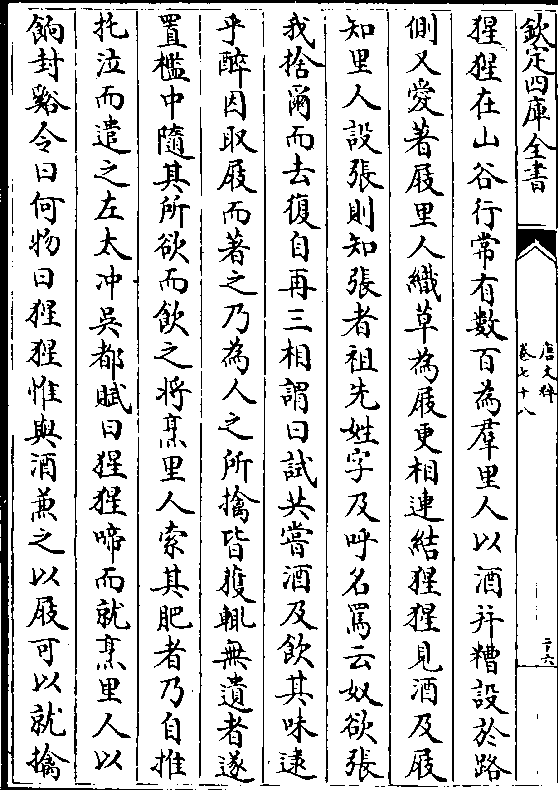 欽定四庫全書
唐文粹
卷七十八
二十六
猩猩在山谷行常有數百為羣里人以酒并糟設於路
側又愛著屐里人織草為屐更相連結猩猩見酒及屐
知里人設張則知張者祖先姓字及呼名罵云奴欲張
我捨爾而去復自再三相謂曰試共嘗酒及飲其味逮
乎醉因取屐而著之乃為人之所擒皆獲輒無遺者遂
置檻中隨其所欲而飲之將烹里人索其肥者乃自推
托泣而遣之左太冲吳都賦曰猩猩啼而就烹里人以
餉封谿令曰何物曰猩猩惟與酒兼之以屐可以就擒